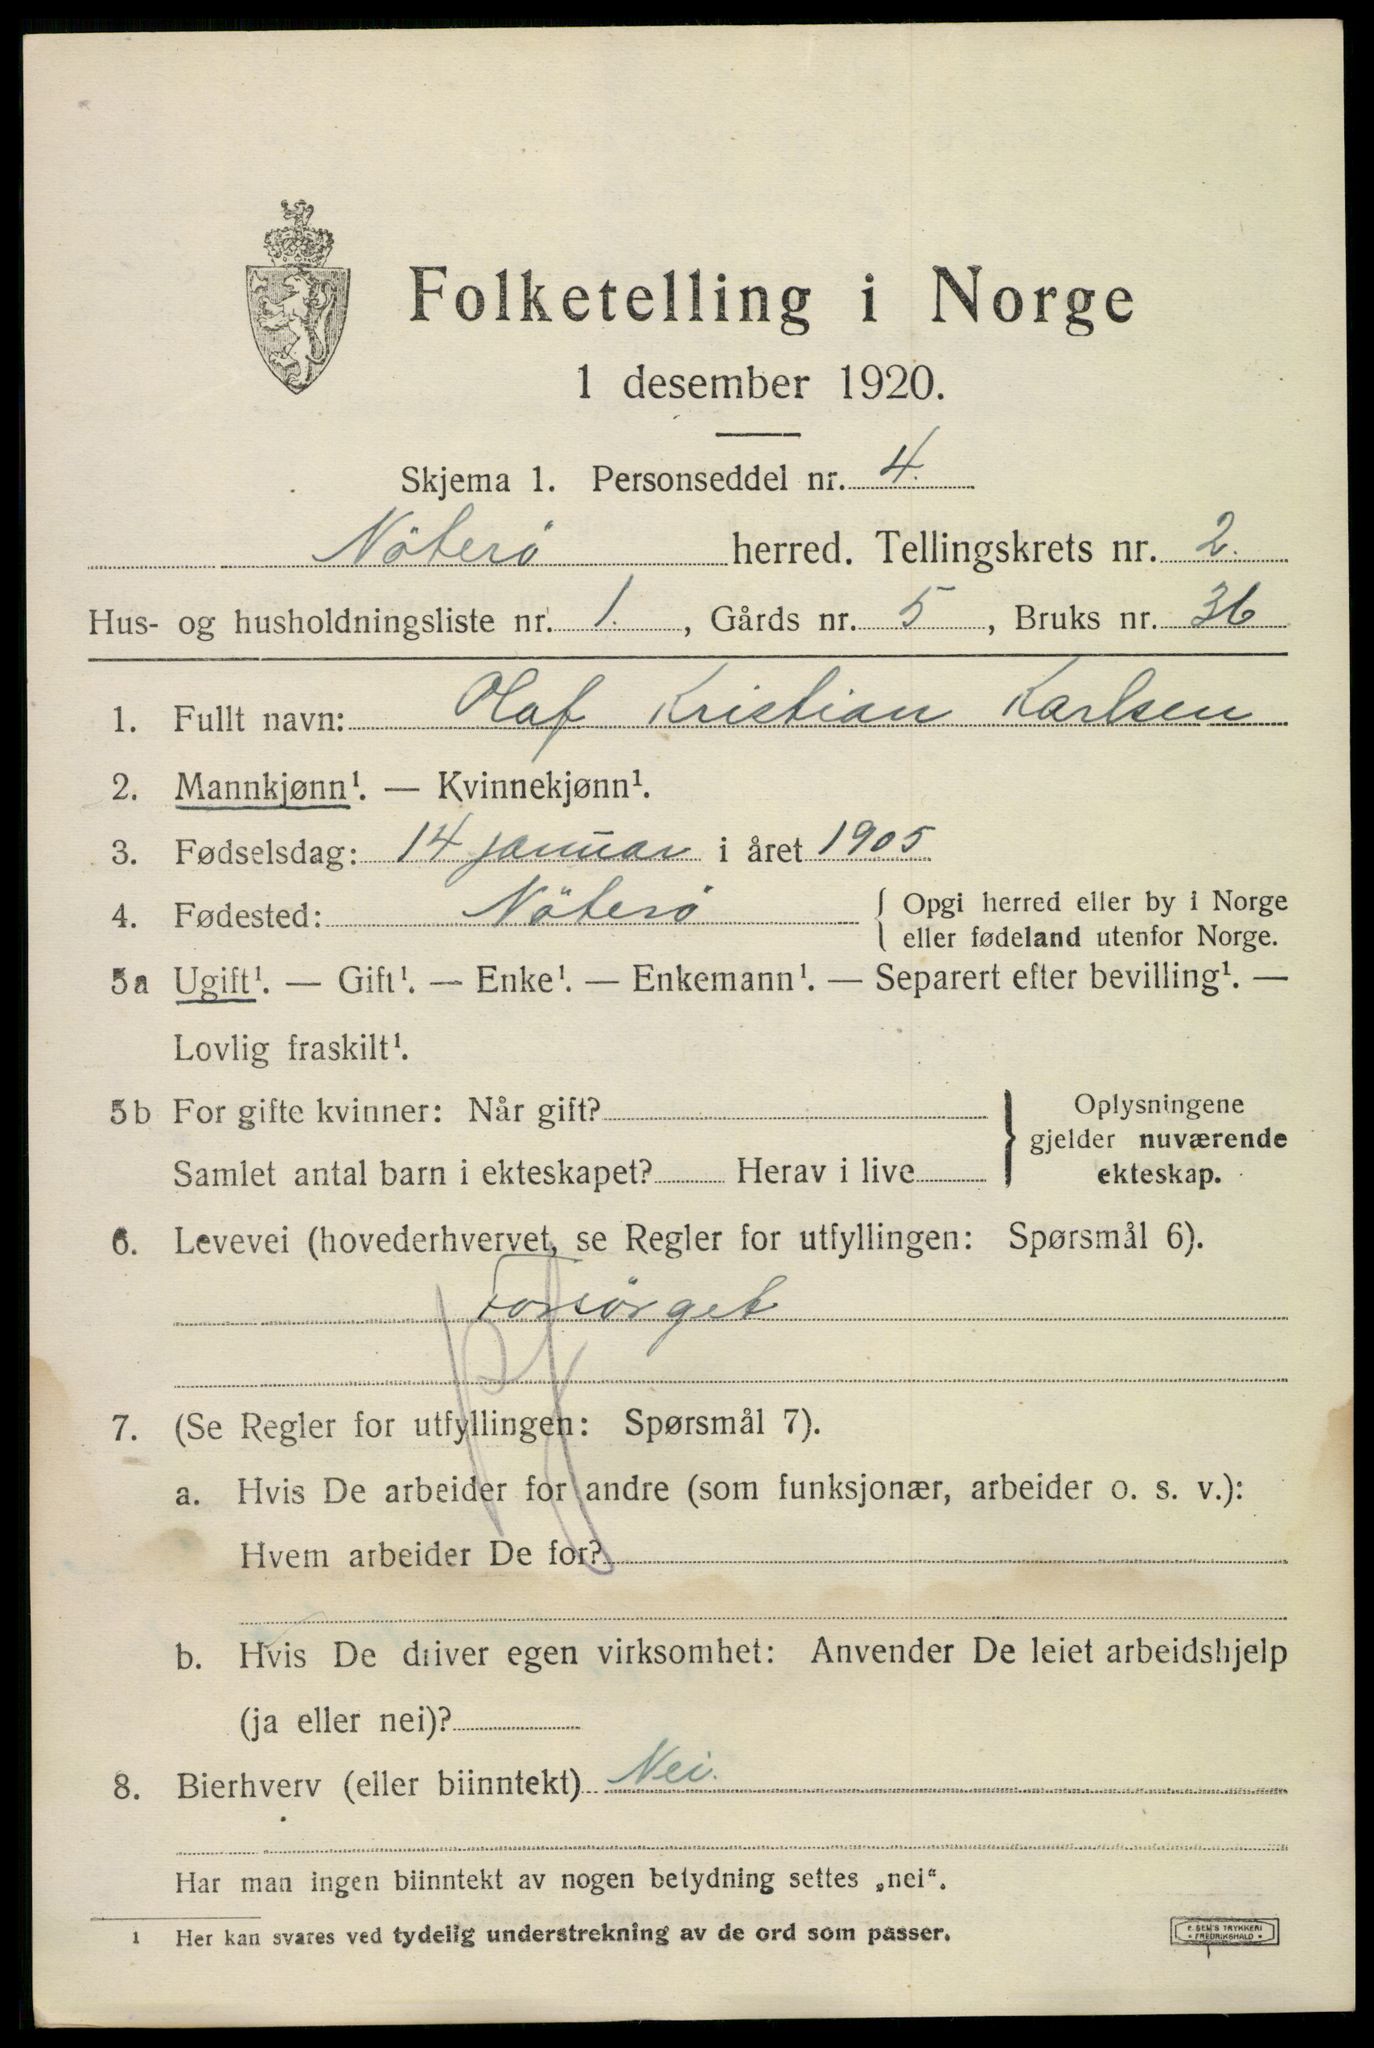 Folketelling i Norge
1 desember 1920.
Skjema 1. Personseddel nr. 4.
Nöterö herred. Tellingskrets nr. 2.
Hus- og husholdningsliste nr. 1., Gårds nr. 5, Bruks nr. 36
1. Fullt navn: Olaf Kristian Karlsen
2. Mannkjønn¹. — Kvinnekjønn¹.
3. Fødselsdag: 14 januar i året 1905
4. Fødested: Nöterö { Opgi herred eller by i Norge
eller fødeland utenfor Norge.
5a Ugift¹. — Gift¹. — Enke¹. — Enkemann¹. — Separert efter bevilling¹. —
Lovlig fraskilt¹.
5b For gifte kvinner: Når gift? } Oplysningene
gjelder nuværende
Samlet antal barn i ekteskapet? Herav i live ekteskap.
6. Levevei (hovederhvervet, se Regler for utfyllingen: Spørsmål 6).
Forsörget
7. (Se Regler for utfyllingen: Spørsmål 7).
a. Hvis De arbeider for andre (som funksjonær, arbeider o. s. v.):
Hvem arbeider De for?
b. Hvis De driver egen virksomhet: Anvender De leiet arbeidshjelp
(ja eller nei)?
8. Bierhverv (eller biinntekt) Nei.
Har man ingen biinntekt av nogen betydning settes „nei“.
1 Her kan svares ved tydelig understrekning av de ord som passer.
E. SEM'S TRYKKERI
* FREDRIKSHALD *